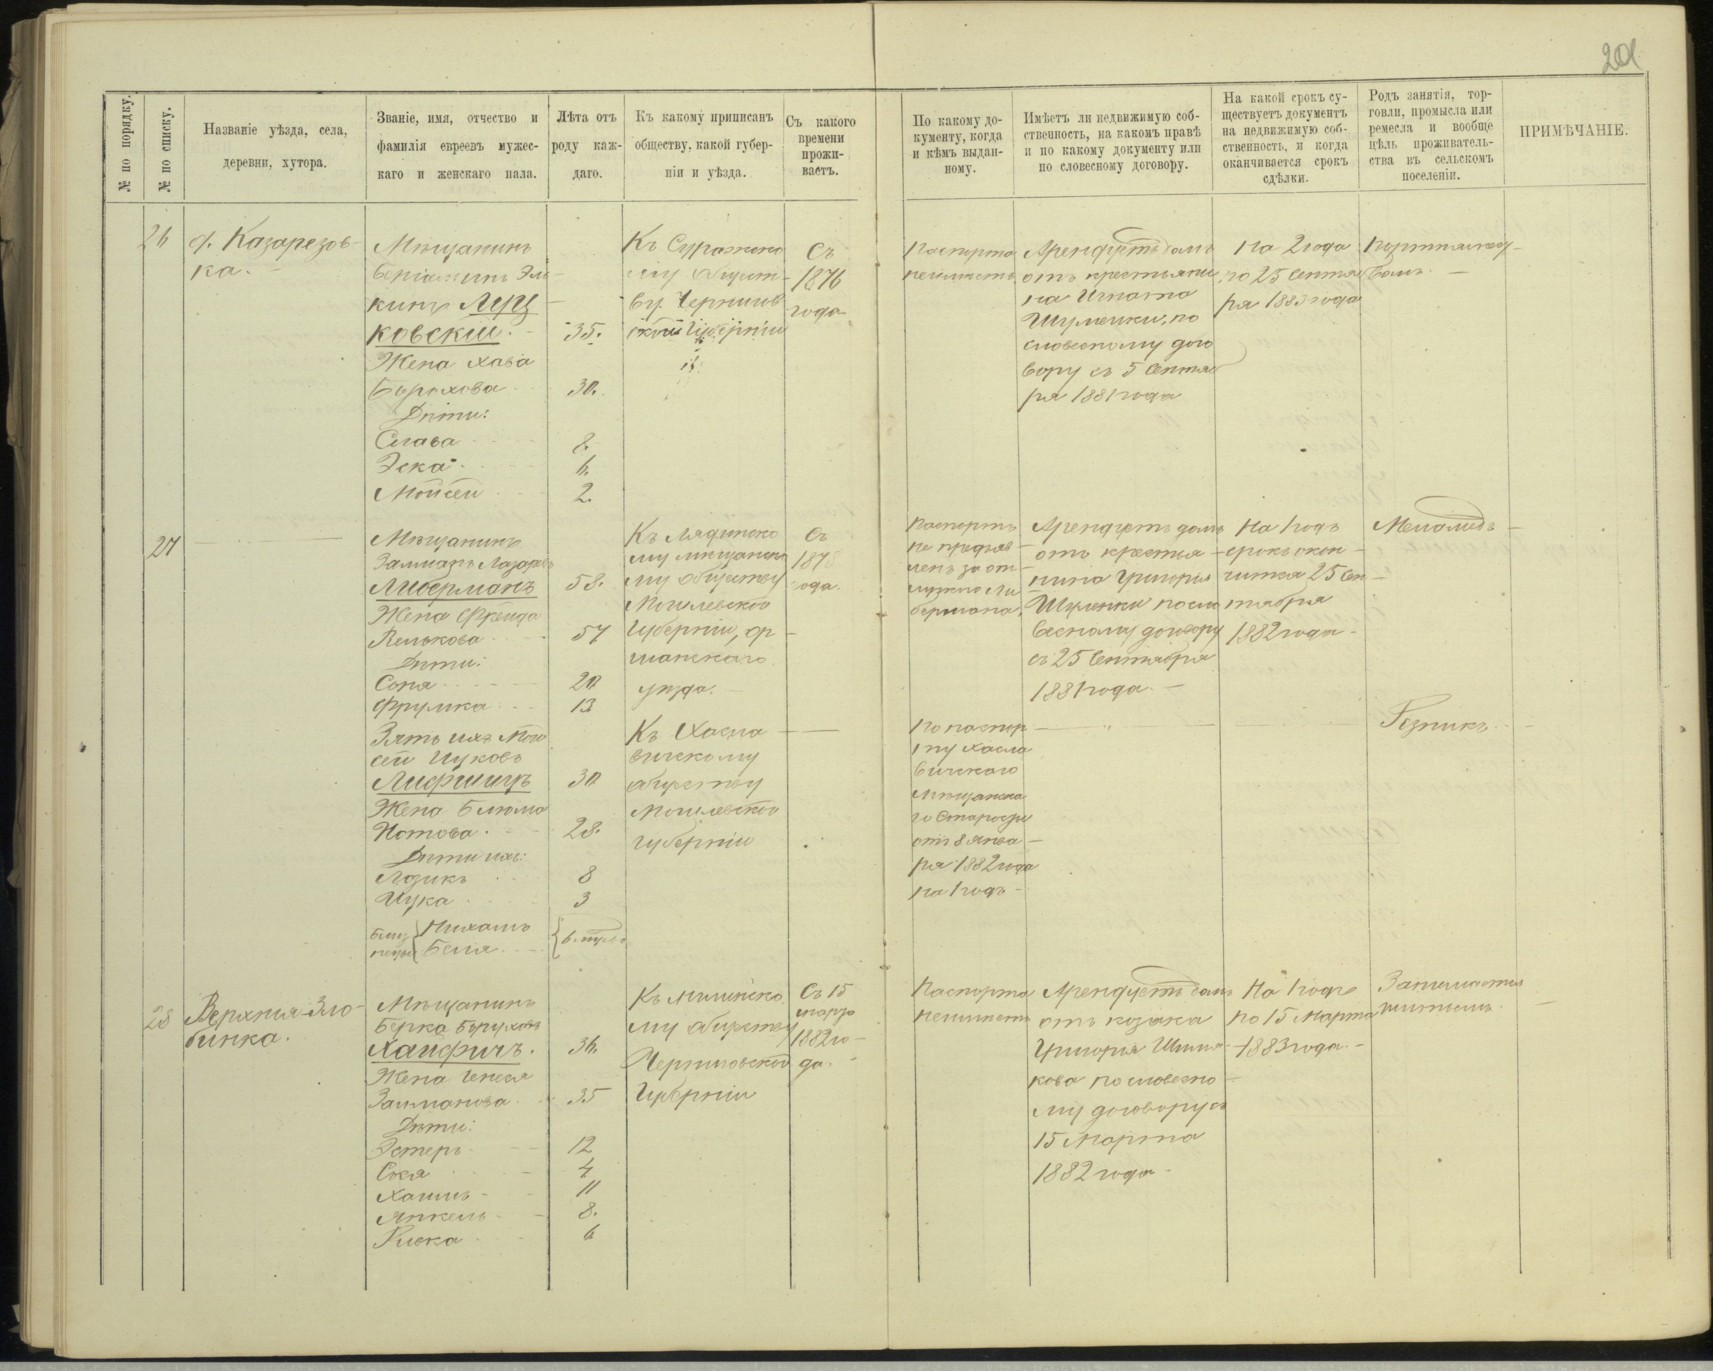 201
№ по порядку.
№ по списку.
Названіе уѣзда, села,
деревни, хутора.
Званіе, имя, отчество и
фамилія евреевъ мужес-
каго и женскаго пала.
Лѣта отъ
роду каж-
даго.
Къ какому приписанъ
обществу, какой губер-
ніи и уѣзда.
Съ какого
времени
прожи-
ваетъ.
По какому до-
кументу, когда
и кѣмъ выдан-
ному.
Имѣетъ ли недвижимую соб-
ственность, на какомъ правѣ
и по какому документу или
по словесному договору.
На какой срокъ су-
ществуетъ документъ
на недвижимую соб-
ственность, и когда
оканчивается срокъ
сдѣлки.
Родъ занятія, тор-
говли, промысла или
ремесла и вообще
цѣль проживатель-
ства въ сельскомъ
поселеніи.
ПРИМѢЧАНІЕ.
26
д. Казарезов-
ка.
Мѣщанинъ
Беніаминъ Эль-
кинъ Луц-
ковскій.
35.
Жена Хава
Борохова
30.
Дѣти:
Слава
8.
Эска
6.
Мойсей
2.
Къ Суражско
му общест-
ву Чернигов
ской Губерніи
Съ
1876
года
Паспорта
неимѣетъ
Арендуетъ домъ
отъ крестьяни
на Игната
Шумейки, по
словесному дого
вору съ 5 Сентяб
ря 1881 года
На 2 года
по 25 Сентяб
ря 1883 года
27
Мѣщанинъ
Залманъ Лазаровъ
Либерманъ
58.
Жена Фрейда
57
Дѣти:
Соня
20
Фрумка
13
Зять ихъ Мой
сей Ицковъ
Лифшицъ
30
Жена Блюма
Нотова.
28.
Дѣти ихъ:
Лазикъ
8
Ицка
3
Близ
нецы
Нихамъ
Беля
Къ Лядинско
му мѣщанско
му обществу
Могилевской
Губерніи, Ор
шанскаго
уѣзда.
Къ Хасла
вичскому
обществу
Могилевской
губерніи
Съ
1878
года.
Паспортъ
не предъяв
ленъ за от-
лучкою Ли
бермана,
По паспор
ту Хасла
вичскаго
Мѣщанска
го Старосты
отъ 8 Янва-
ря 1882 года
на 1 годъ
Арендуетъ домъ
отъ крестья-
нина Григорія
Шуменки по сло
весному договору
съ 25 Сентября
1881 года.
На 1 годъ
срокъ окон-
чится 25 Сен-
тября
1882 года
Меламедъ
Резникъ
28
Верхняя-Зло-
бинка.
Мѣщанинъ
Берка Боруховъ
Хайфичъ.
36.
Жена Генеся
Залманова
35
Дѣти:
Эстеръ
12
Сося
4
Хаимъ
11
Янкель
8.
Риска
6
Къ Мглинско
му обществу
Черниговской
Губерніи
Съ 15
марта
1882 го-
да.
Паспорта
неимѣетъ
Арендуетъ домъ
отъ козака
Григорія Шишя-
кова по словесно
му договору съ
15 Марта
1882 года
На 1 годъ
по 15 Марта
1883 года.
Занимается
шитьемъ